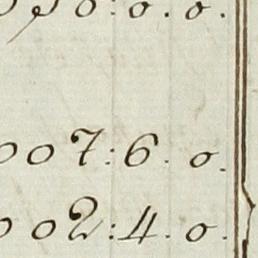 0:0.0.
007:6.0.
002:4.0.